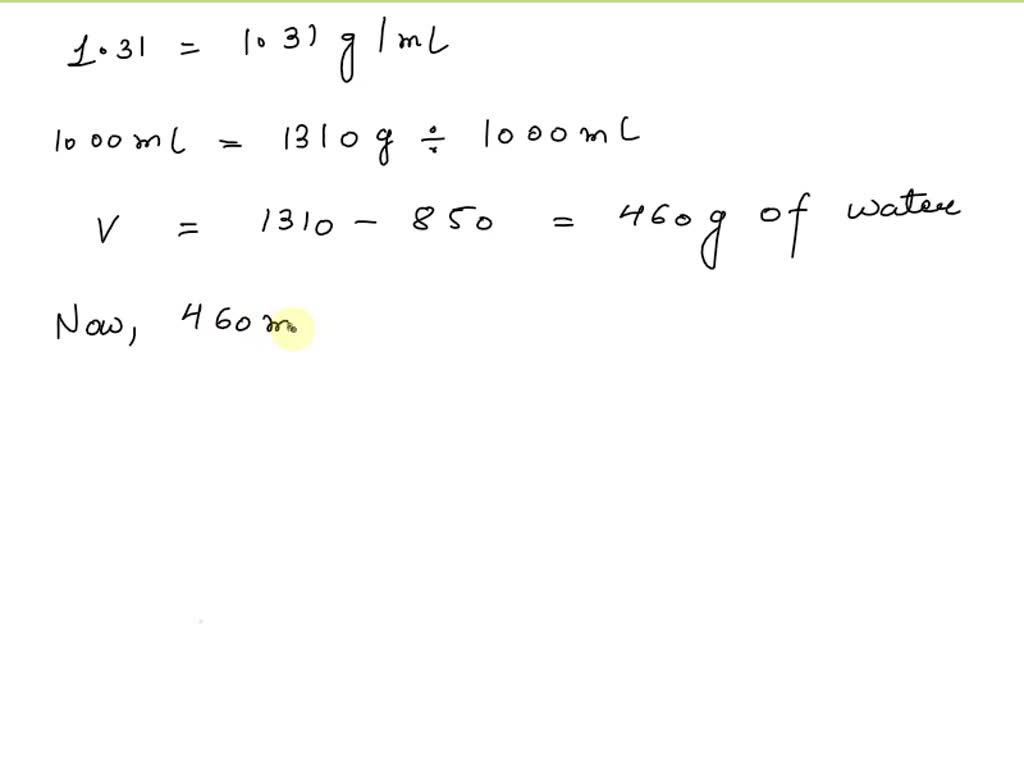 1.31 = 1.31 g/mL
1000mL = 1310g ÷ 1000mL
V = 1310 - 850 = 460g of water
Now, 460m